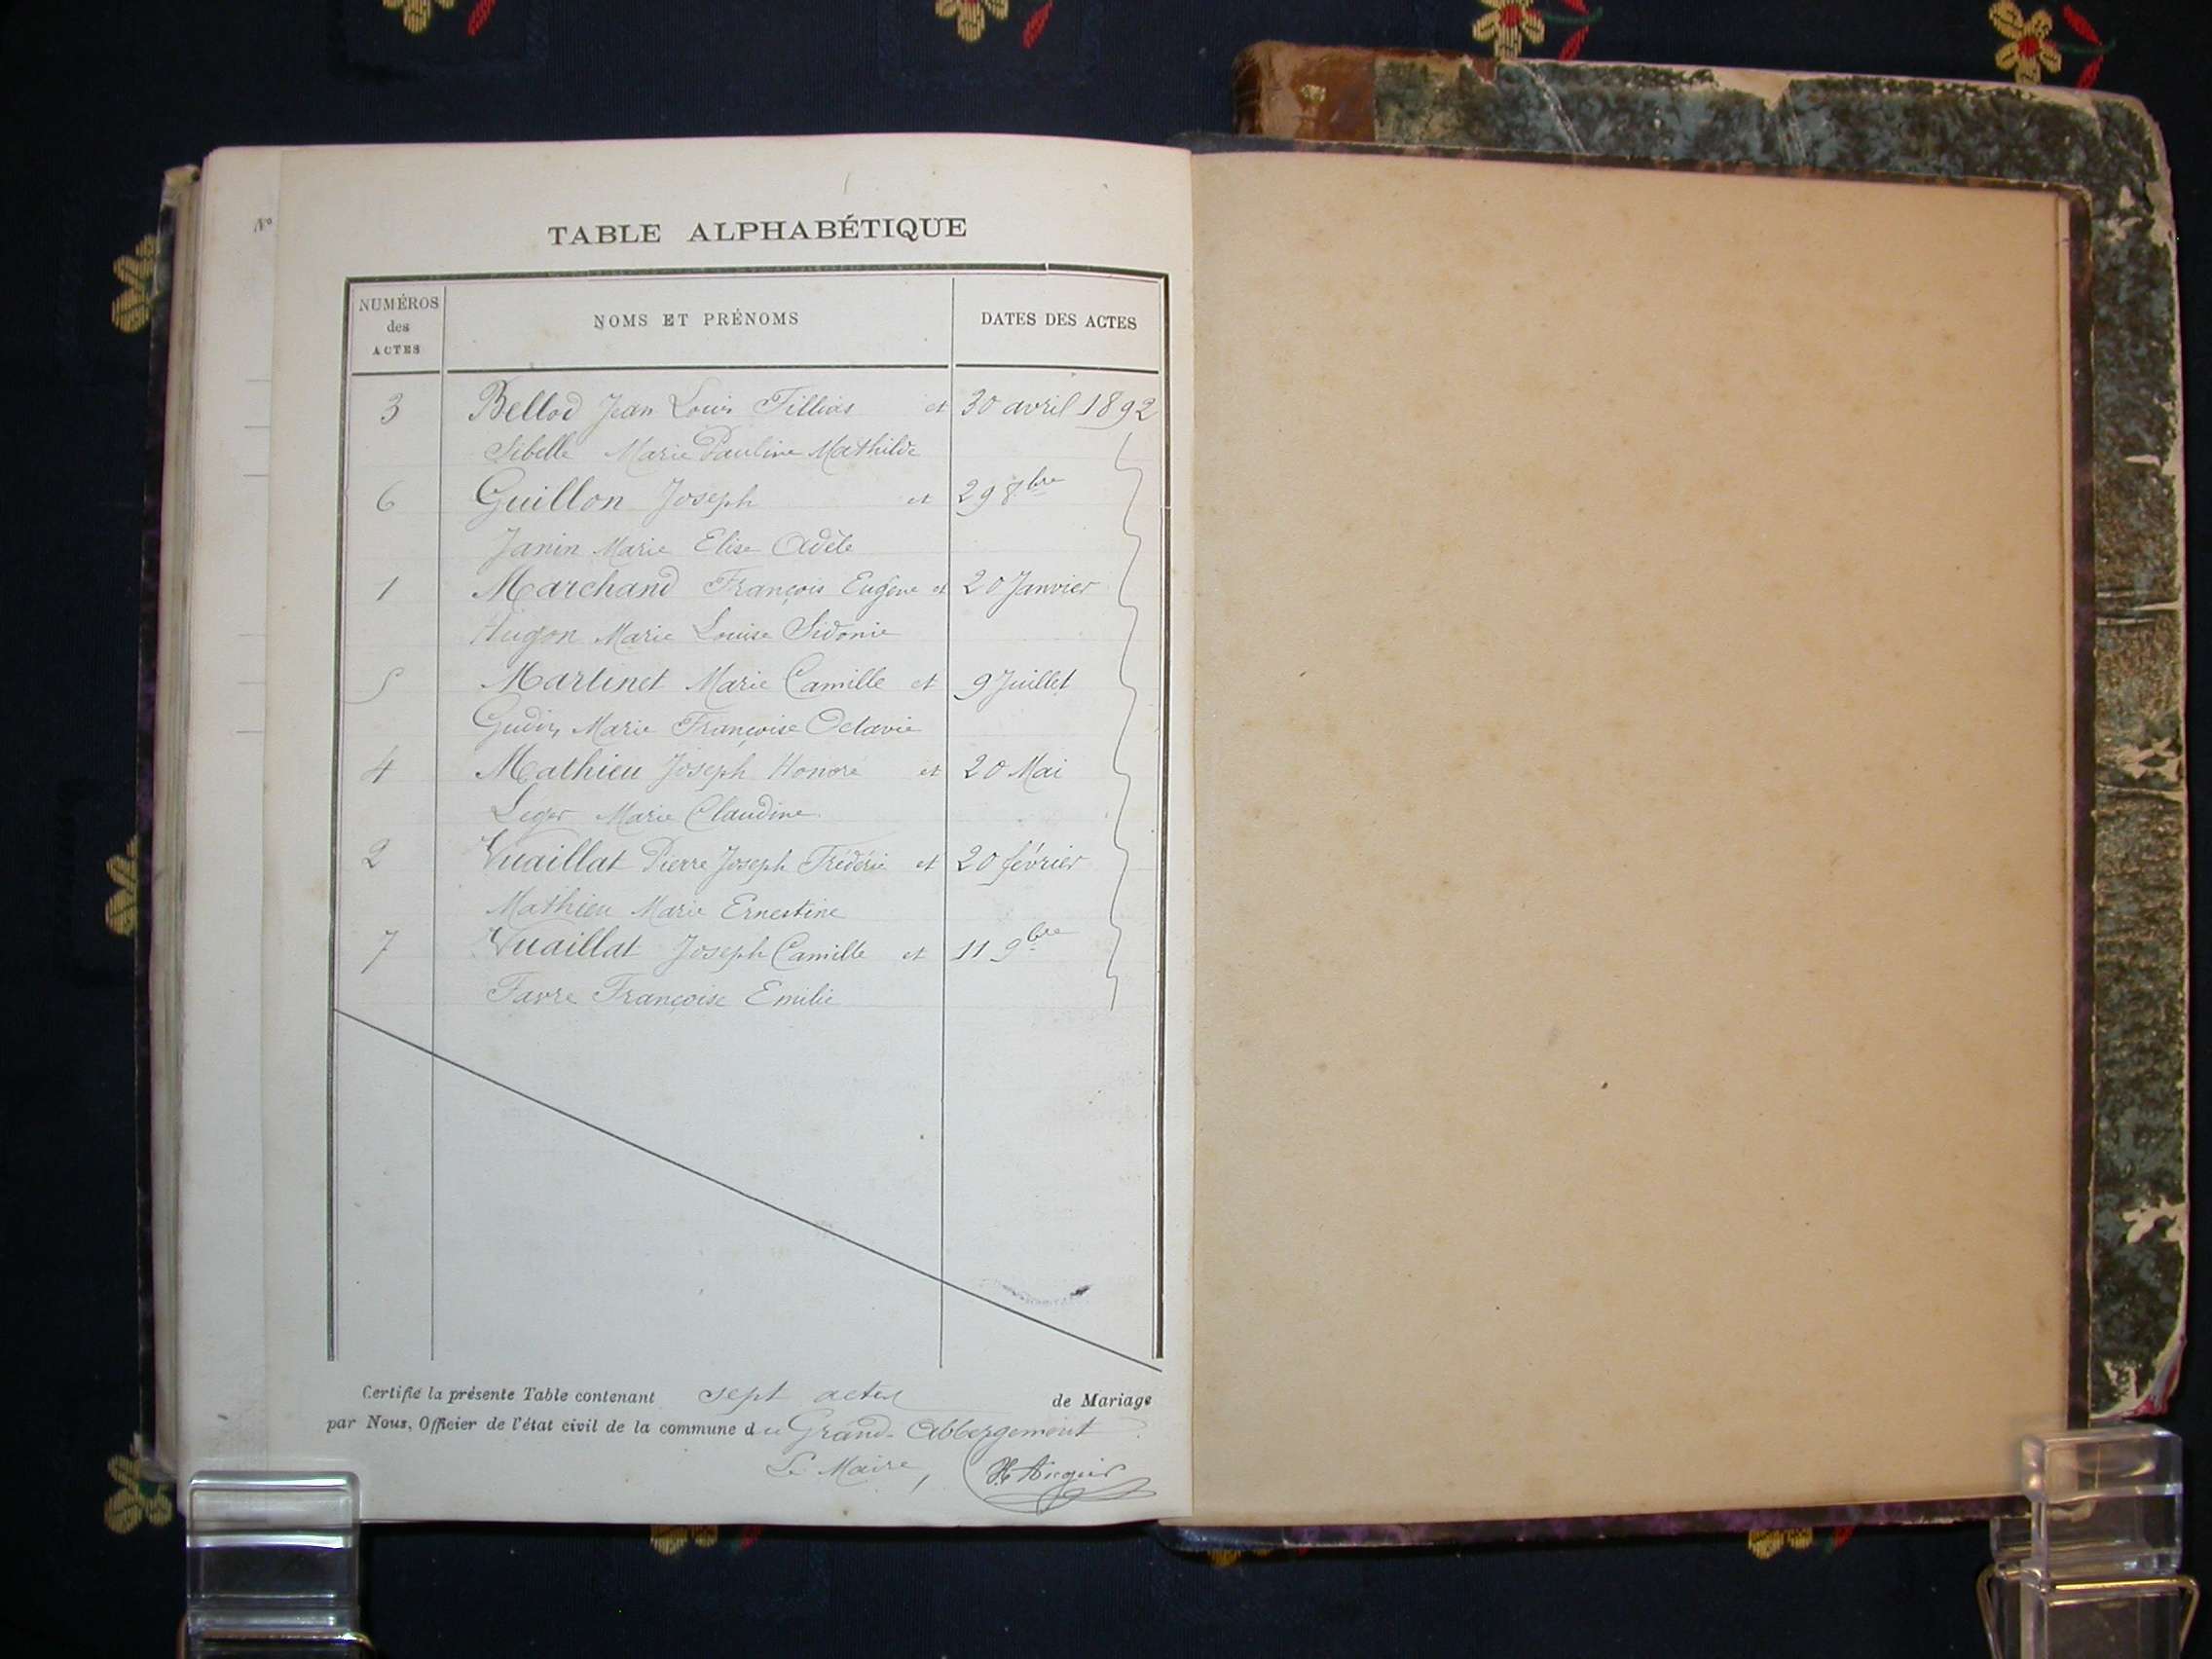 Nº
TABLE ALPHABÉTIQUE
NUMÉROS
des
ACTES
NOMS ET PRÉNOMS
DATES DES ACTES
3 Bellod Jean Louis et 30 avril 1892
Sibelle Marie Pauline Mathilde
6 Guillon Joseph et 29 8bre
Janin Marie Elise Adèle
1 Marchand François Eugène et 20 Janvier
Hugon Marie Louise Sidonie
5 Martinet Marie Camille et 9 Juillet
Marie Françoise Octavie
4 Mathieu Joseph Honoré et 20 Mai
Leger Marie Claudine
2 Vuaillat Pierre Joseph Frédéric et 20 février
Mathieu Marie Ernestine
7 Vuaillat Joseph Camille et 11 9bre
Favre Françoise Emilie
Certifié la présente Table contenant sept actes de Mariage
par Nous, Officier de l'état civil de la commune du Grand-Abbergement
Le Maire,